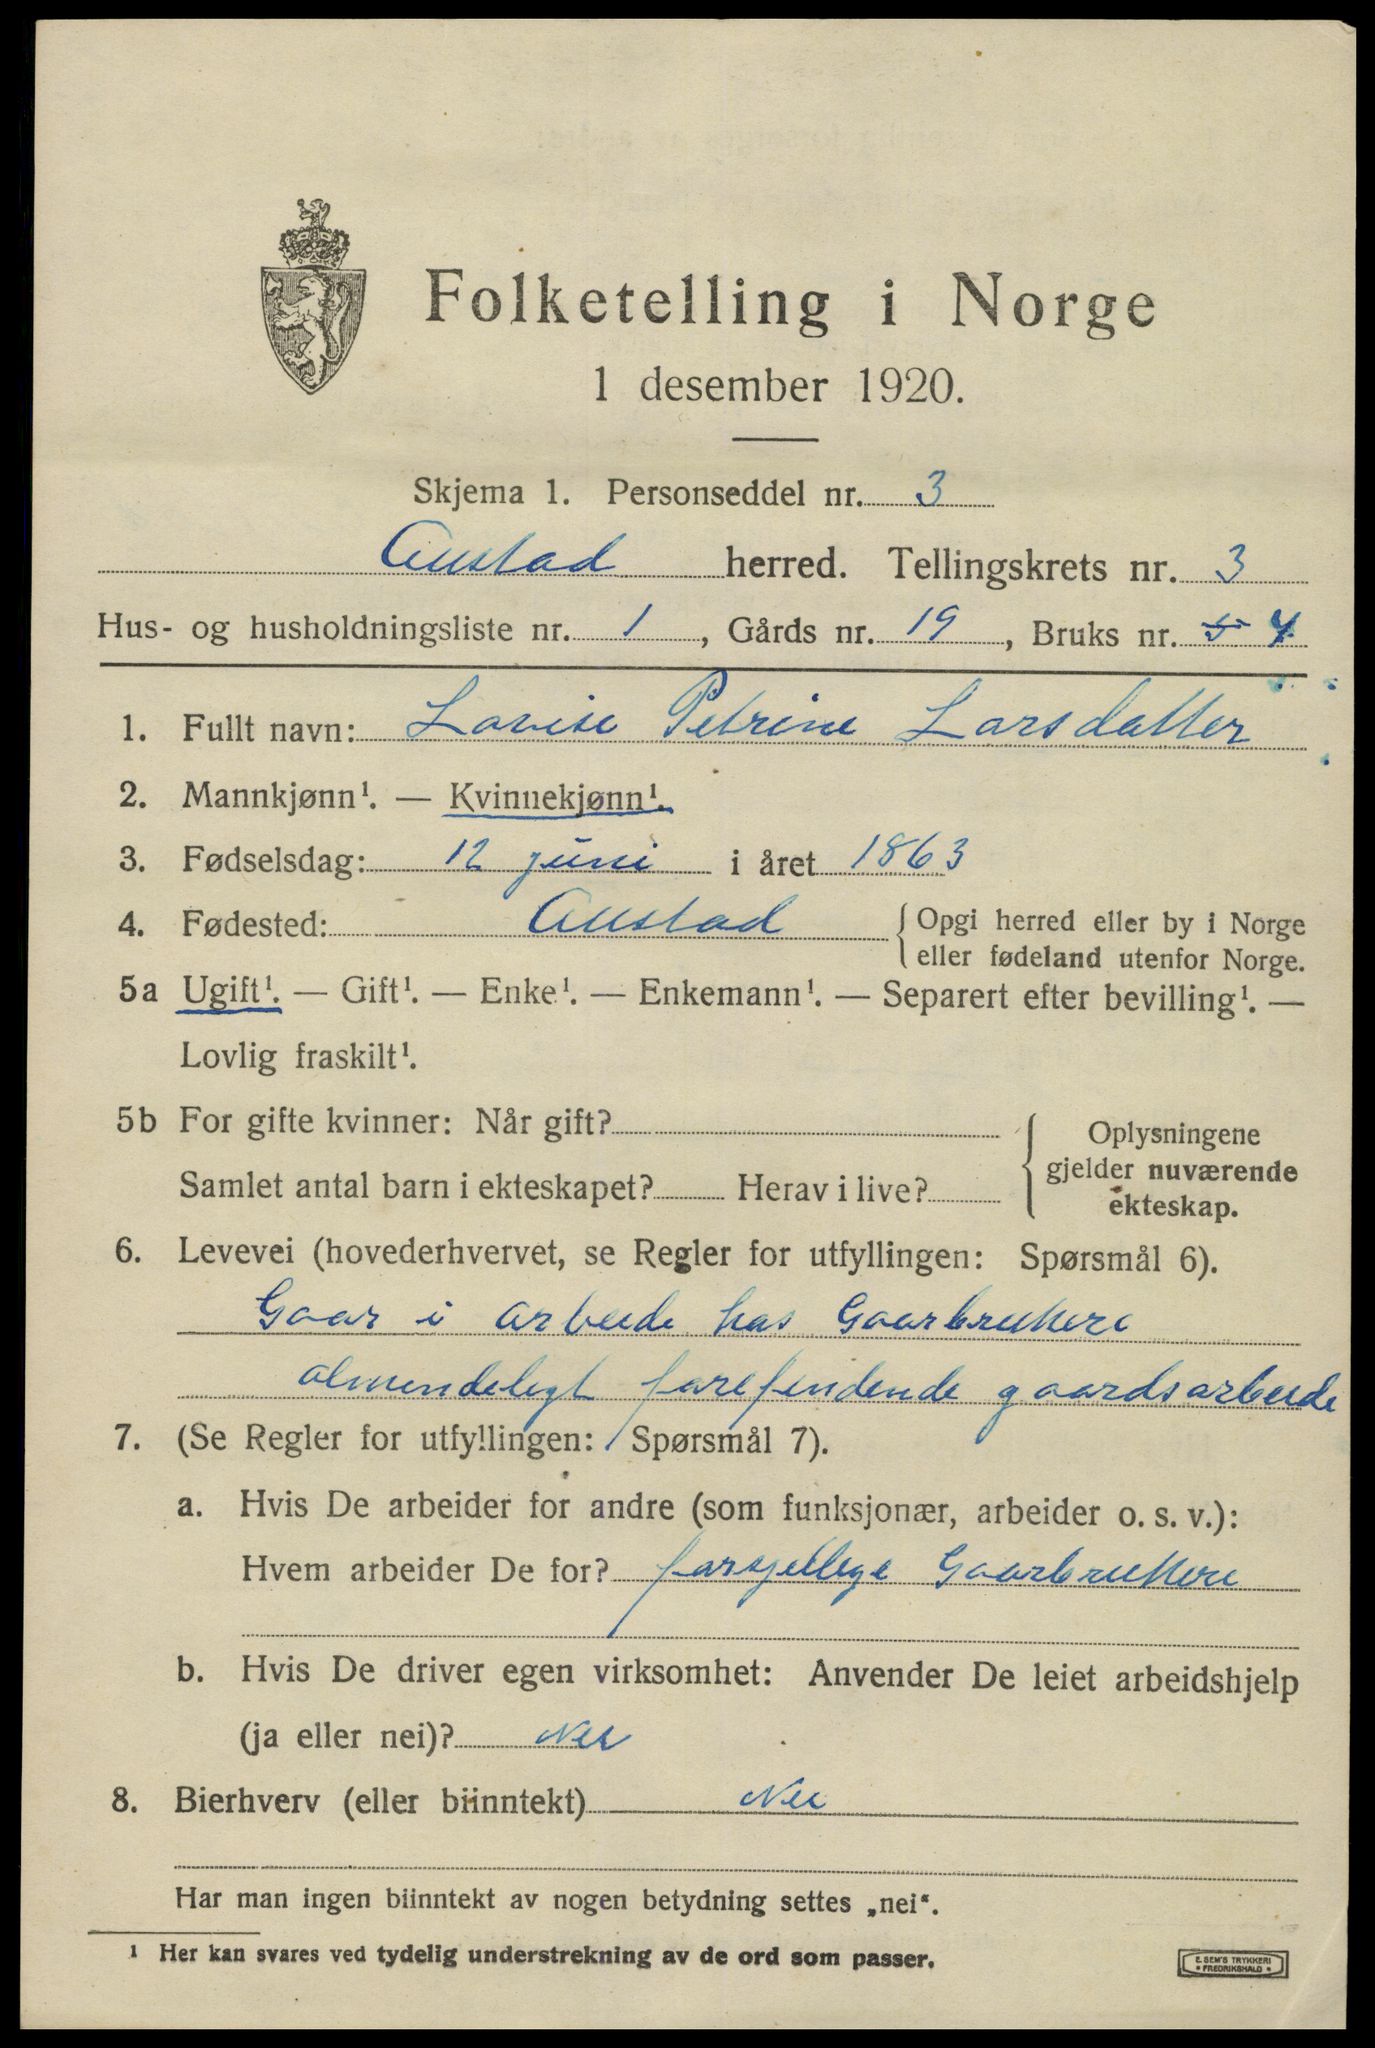 Folketelling i Norge
1 desember 1920.
Skjema 1. Personseddel nr. 3
Austad herred. Tellingskrets nr. 3
Hus- og husholdningsliste nr. 1, Gårds nr. 19, Bruks nr. 5 4
1. Fullt navn: Lovise Petrine Larsdatter
2. Mannkjønn¹. — Kvinnekjønn¹.
3. Fødselsdag: 12 juni i året 1863
4. Fødested: Austad { Opgi herred eller by i Norge
eller fødeland utenfor Norge.
5a Ugift¹. — Gift¹. — Enke¹. — Enkemann¹. — Separert efter bevilling¹. —
Lovlig fraskilt¹.
5b For gifte kvinner: Når gift?
Samlet antal barn i ekteskapet? Herav i live?
{ Oplysningene
gjelder nuværende
ekteskap.
6. Levevei (hovederhvervet, se Regler for utfyllingen: Spørsmål 6).
Gaar i arbeide hos Gaarbrukere
almendelegt forefindende gaardsarbeide
7. (Se Regler for utfyllingen: Spørsmål 7).
a. Hvis De arbeider for andre (som funksjonær, arbeider o. s. v.):
Hvem arbeider De for? forsjellige Gaarbrukere
b. Hvis De driver egen virksomhet: Anvender De leiet arbeidshjelp
(ja eller nei)? Nei
8. Bierhverv (eller biinntekt) Nei
Har man ingen biinntekt av nogen betydning settes „nei“.
¹ Her kan svares ved tydelig understrekning av de ord som passer.
E. SEM'S TRYKKERI
• FREDRIKSHALD •